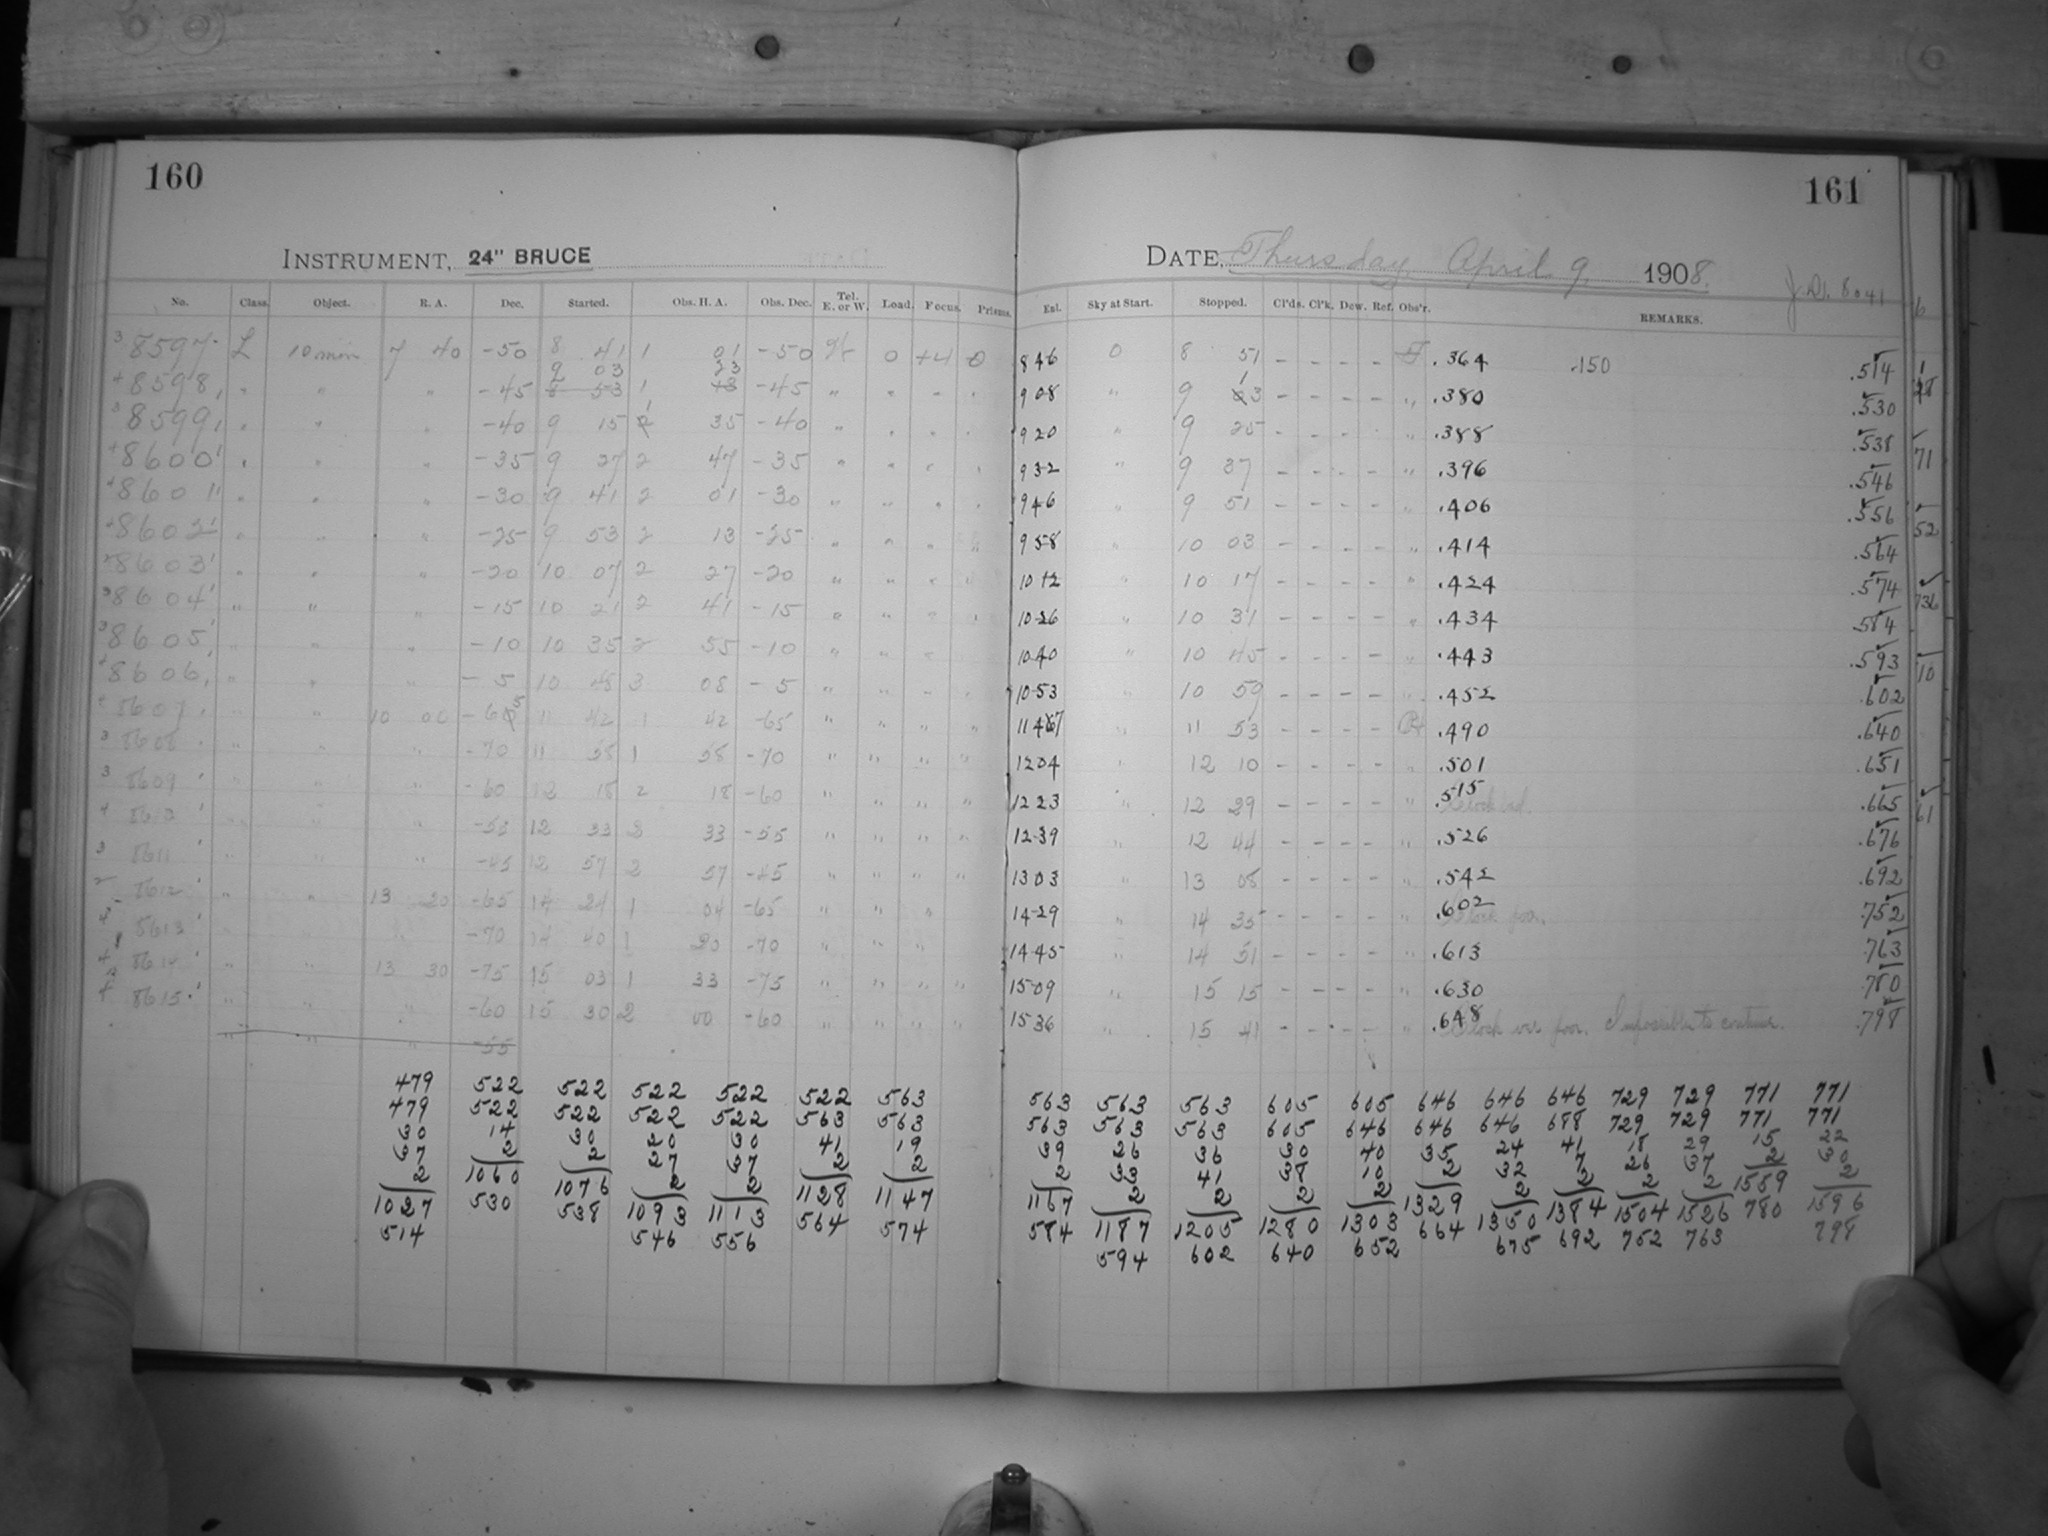 160
161
INSTRUMENT, 24" BRUCE
DATE, Thursday, April 9, 1908.
J.D. 8041
No. Class. Object. R. A. Dec. Started. Obs. H. A. Obs. Dec. Tel. E. or W. Load. Focus. Prisms. Ext. Sky at Start. Stopped. Cl'ds. Cl'k. Dew. Ref. Obs'r. REMARKS.
3 8597 L 10 min 7 40 -50 8 41 1 01 -50 0 +4 0 846 0 8 51 - - - - .364 .150 .514
9 03 23
4 8598 " " " -45 8 53 1 13 -45 " " - " 908 " 9 13 - - - - " .380 .530
3 8599 " " " -40 9 15 1 35 -40 " " " " 920 " 9 25 - - - - " .388 .538
4 8600 " " " -35 9 27 2 47 -35 " " " " 932 " 9 37 - - - - " .396 .546
4 8601 " " " -30 9 41 2 01 -30 " " " " 946 " 9 51 - - - - " .406 .556
4 8602 " " " -25 9 53 2 13 -25 " " " " 958 " 10 03 - - - - " .414 .564
8603 " " " -20 10 07 2 27 -20 " " " " 1012 " 10 17 - - - - " .424 .574
3 8604 " " " -15 10 21 2 41 -15 " " " " 1026 " 10 31 - - - - " .434 .584
3 8605 " " " -10 10 35 2 55 -10 " " " 1040 " 10 45 - - - - " .443 .593
4 8606 " " " -5 10 48 3 08 -5 " " " 1053 " 10 59 - - - - " .452 .602
8607 " " 10 00 -65 11 42 1 42 -65 " " " " 1147 " 11 53 - - - - .490 .640
3 8608 " " " -70 11 58 1 58 -70 " " " " 1204 " 12 10 - - - - " .501 .651
3 8609 " " " -60 12 18 2 18 -60 " " " " 1223 " 12 29 - - - - " .515 Clock bad. .665
4 8610 " " -55 12 33 2 33 -55 " " " " 1239 " 12 44 - - - - " .526 .676
3 8611 " " " -45 12 57 2 57 -45 " " " " 1303 " 13 08 - - - - " .542 .692
8612 " " 13 20 -65 14 24 1 04 -65 " " " 1429 " 14 35 - - - - " .602 Clock poor. .752
8613 " -70 14 40 1 20 -70 " " " 1445 " 14 51 - - - - " .613 .763
8614 " " 13 30 -75 15 03 1 33 -75 " " " " 1509 " 15 15 - - - - " .630 .780
8615 " " " -60 15 30 2 00 -60 " " " " 1536 " 15 41 - - - - " .648 Clock very poor. Impossible to continue. .798
" " " -55
479 522 522 522 522 522 563 563 563 563 605 605 646 646 646 729 729 771 771
479 522 522 522 522 563 563 563 563 563 605 646 646 646 688 729 729 771 771
30 14 30 20 30 41 19 39 26 36 30 40 35 24 41 18 29 15 22
37 2 2 27 37 2 2 2 33 41 38 10 2 32 7 26 37 2 30
2 1060 1076 2 2 1128 1147 1167 2 2 2 2 1329 2 2 2 2 1559 2
1027 530 538 1093 1113 564 574 584 1187 1205 1280 1303 664 1350 1384 1504 1526 780 1596
514 546 556 594 602 640 652 675 692 752 763 798
6
71
52
736
10
61